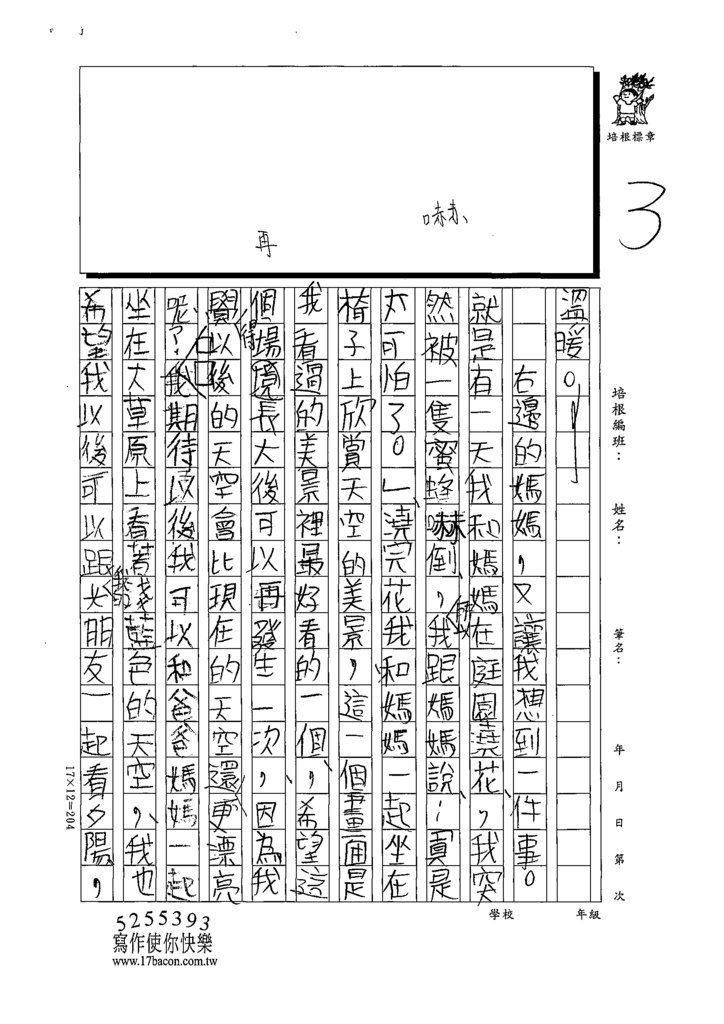 培根標章
3
嚇
再
溫暖。
右邊的媽媽，又讓我想到一件事。
就是有一天我和媽媽在庭園澆花，我突
然被一隻蜜蜂嚇倒，我跟媽媽說：「真是
太可怕了。」澆完花我和媽媽一起坐在
椅子上欣賞天空的美景，這一個畫面是
我看過的美景裡最好看的一個，希望這
個場境長大後可以再發生一次，因為我
覺得以後的天空會比現在的天空還更漂亮
呢？我期待以後我可以和爸爸媽媽一起
坐在大草原上看著淺藍色的天空，我也
希望我以後可以跟我的朋友一起看夕陽，
培根編班：
姓名：
筆名：
年 月 日 第 次
學校 年級
17×12=204
5255393
寫作使你快樂
www.17bacon.com.tw